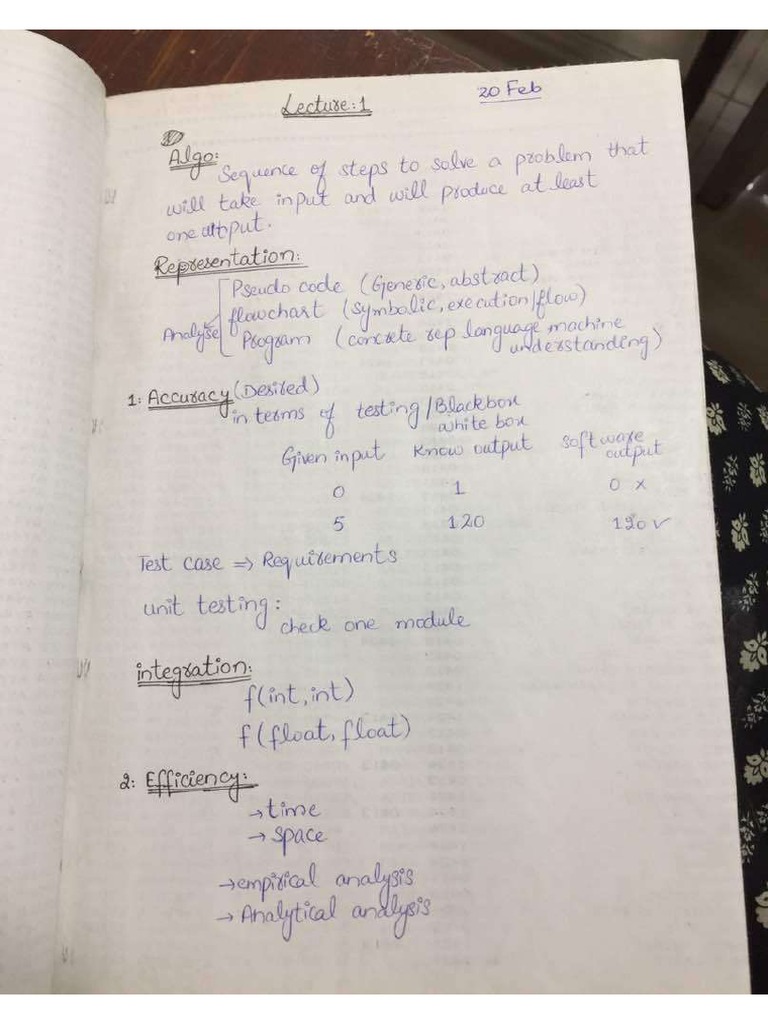 Lecture:1 20 Feb
Algo:
Sequence of steps to solve a problem that
will take input and will produce at least
one output.
Representation:
Pseudo code (Generic, abstract)
flowchart (Symbolic, execution/flow)
Analyse Program (concrete rep language machine
understanding)
1: Accuracy (Desired)
in terms of testing/Blackbox
white box
Given input Know output Software
output
0 1 0 x
5 120 120 ✓
Test case => Requirements
unit testing:
check one module
integration:
f(int,int)
f(float,float)
2: Efficiency:
→time
→space
→empirical analysis
→Analytical analysis